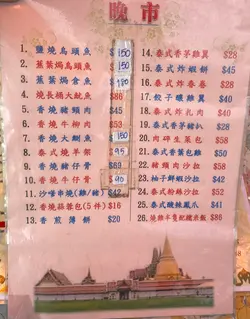 晚市
1. 鹽燒烏頭魚 150
2. 蕉葉焗烏頭魚 150
3. 蕉葉焗倉魚 180
4. 燒長桶大魷魚 $86
5. 香燒豬頸肉 $45
6. 香燒牛柳肉 $53
7. 香燒大鯏魚 180
8. 泰式燒羊架 95
9. 香燒豬仔骨 $69
10. 香燒牛仔骨 90
11. 沙嗲串燒(雞/豬) $42
12. 香燒蒜蓉包(5件) $16
13. 香煎薄餅 $20
14. 泰式香茅雞翼 $28
15. 泰式炸蝦餅 $45
16. 泰式炸春卷 $28
17. 餃子釀雞翼 $40
18. 泰式炸扎肉 $40
19. 泰式香茅豬扒
20. 肉碎生菜包 $58
21. 泰式香葉包雞 $50
22. 豬頸肉沙拉 $58
23. 柚子鮮蝦沙拉 $52
24. 泰式粉絲沙拉 $52
25. 泰式酸辣鳳爪 $41
26. 燒雞半隻配糯米飯 $86